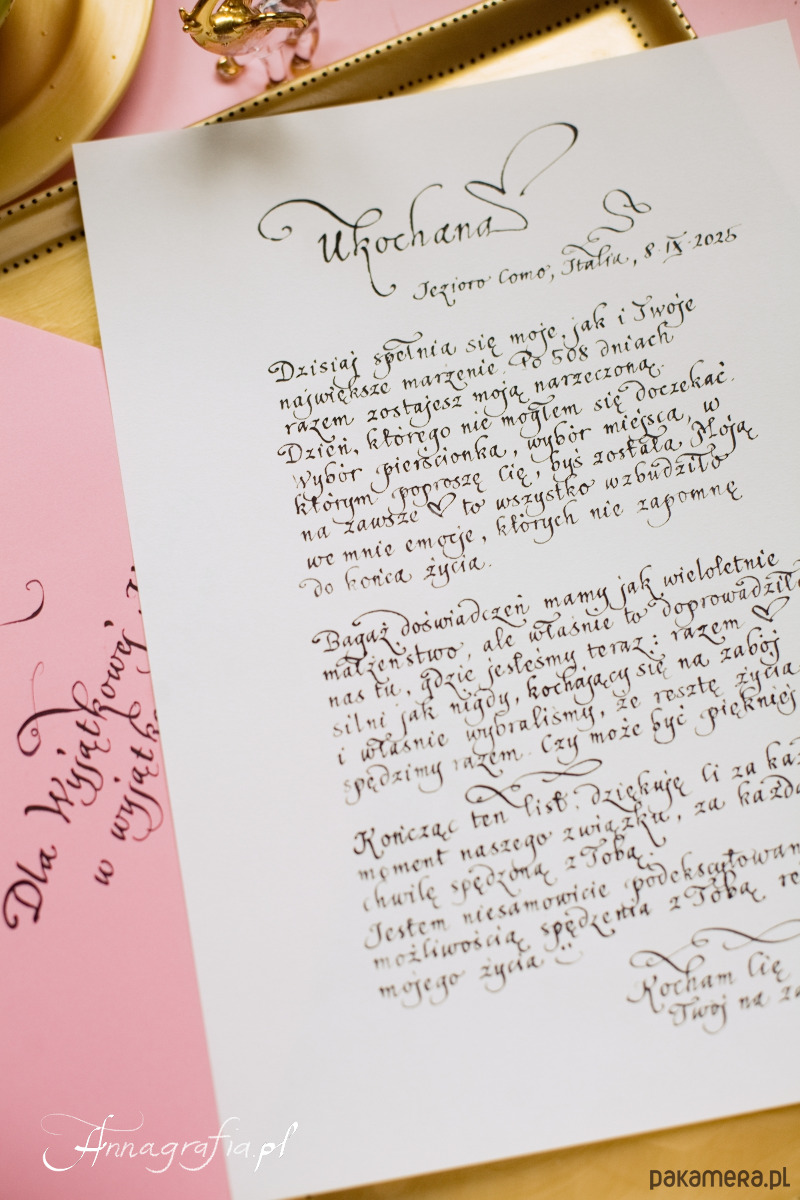 Ukochana
Jezioro Como, Italia, 8.IX.2025
Dzisiaj spełnia się moje, jak i Twoje
największe marzenie. Po 508 dniach
razem zostajesz moją narzeczoną.
Dzień, którego nie mogłem się doczekać.
Wybór pierścionka, wybór miejsca, w
którym poproszę Cię, byś została Moją
na zawsze ♡ to wszystko wzbudziło
we mnie emocje, których nie zapomnę
do końca życia.
Bagaż doświadczeń mamy jak wieloletnie
małżeństwo, ale właśnie to doprowadziło
nas tu, gdzie jesteśmy teraz: razem ♡
silni jak nigdy, kochający się na zabój
i właśnie wybraliśmy, że resztę życia
spędzimy razem. Czy może być piękniej
Kończąc ten list, dziękuję Ci za każ
moment naszego związku, za każdą
chwilę spędzoną z Tobą.
Jestem niesamowicie podekscytowan
możliwością spędzenia z Tobą re
mojego życia ☺
Kocham Cię
Twój na za
Dla Wyjątkowej
w wyjątk
Annagrafia.pl
pakamera.pl